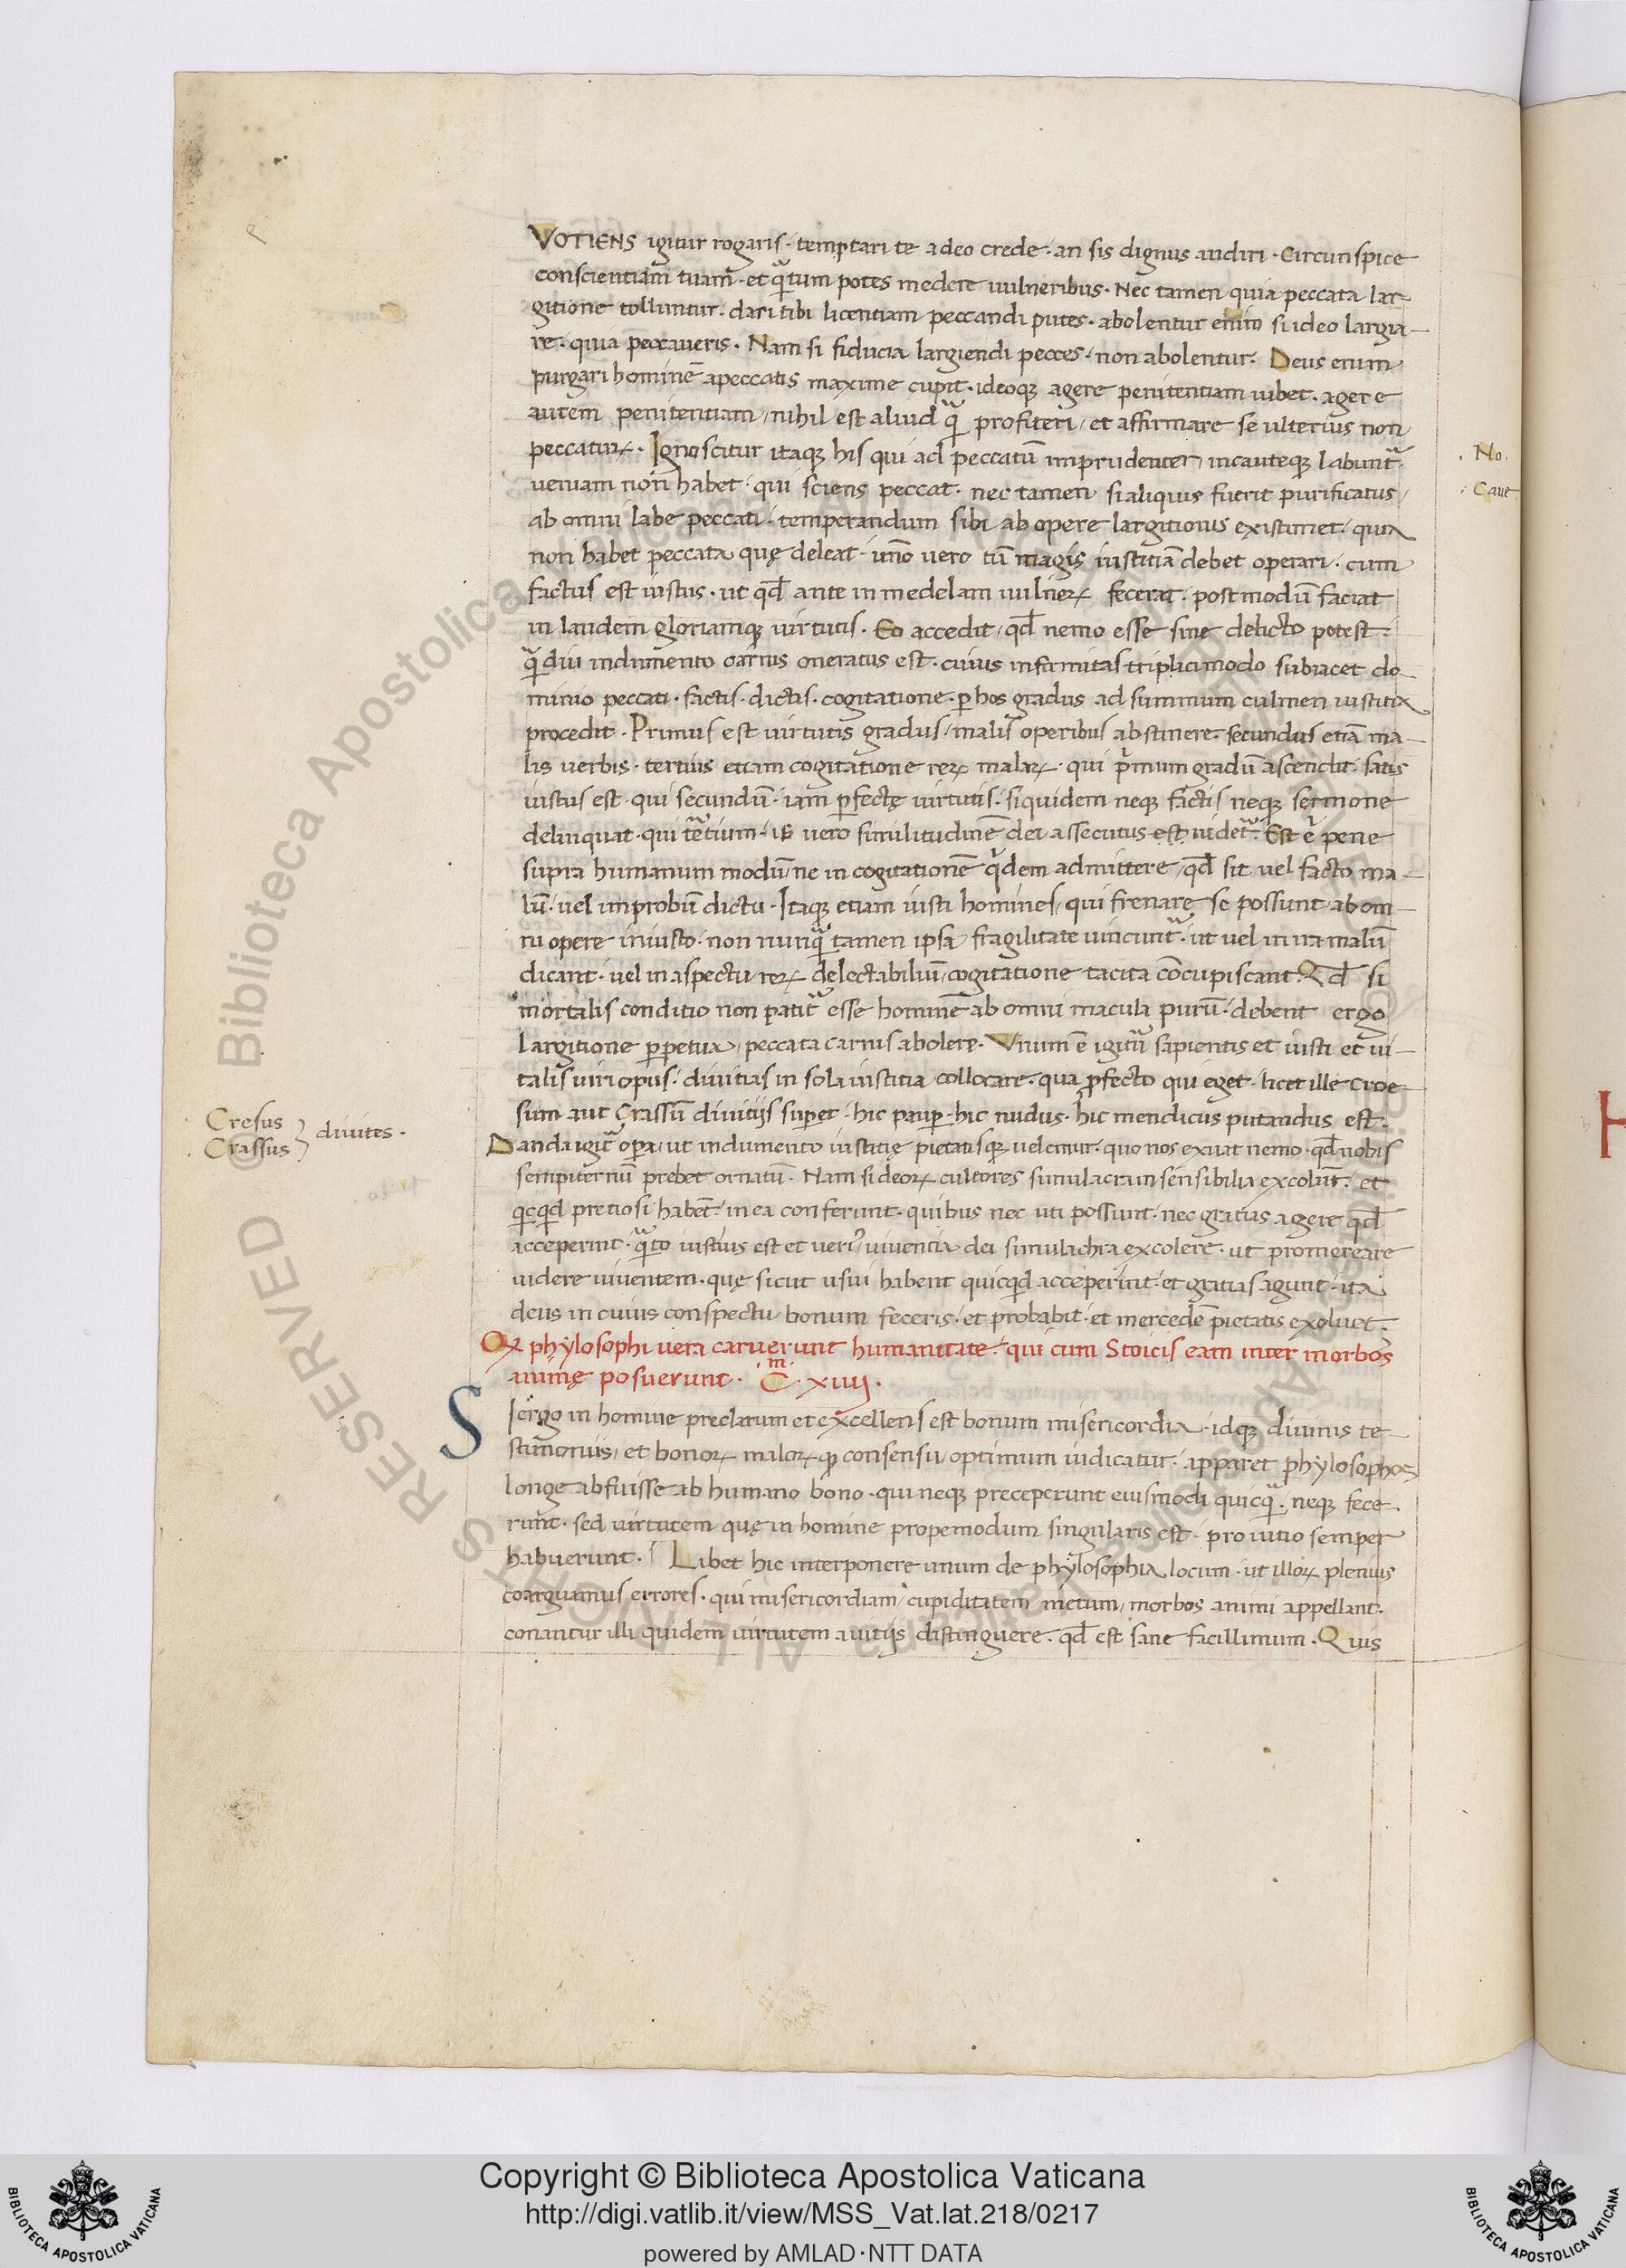 VOTIENS igitur rogaris · temptari te a deo crede · an sis dignus audiri · Circunspice
conscientiam tuam · et q̃tum potes medere uulneribus · Nec tamen quia peccata lar-
gitione tolluntur · dari tibi licentiam peccandi putes · abolentur enim si ideo largia-
re · quia peccaueris · Nam si fiducia largiendi pecces · non abolentur · Deus enim
purgari hominẽ apeccatis maxime cupit · ideoqꝫ agere penitentiam iubet · agere
autem penitentiam / nihil est aliud q̃ profiteri / et affirmare se ulterius non
peccaturꝝ · Ignoscitur itaqꝫ his qui ad peccatũ imprudenter / incauteqꝫ labunt᷑ ·
· No ·
ueniam non habet · qui sciens peccat · nec tamen si aliquis fuerit purificatus /
· Caue ·
ab omni labe peccati · temperandum sibi ab opere largitionis existimet · quia
non habet peccata quę deleat · imo uero tũ magis iustitiã debet operari · cum
factus est iustus · ut qđ ante in medelam uulnerꝝ fecerat · postmodũ faciat
in laudem gloriamqꝫ uirtutis · Eo accedit / qđ nemo esse sine delicto potest ·
q̃diu indumento carnis oneratus est · cuius infirmitas triplici modo subiacet do-
minio peccati · factis · dictis · cogitatione · ꝑ hos gradus ad summum culmen iustitia
procedit · Primus est uirtutis gradus / malis operibus abstinere · secundus etiã ma-
lis uerbis · tertius etiam cogitatione rerꝝ malarꝝ · qui p̃mum gradũ ascendit · satis
iustus est · qui secundũ · iam ꝑfectę uirtutis · siquidem neqꝫ factis neqꝫ sermone
delinquat · qui t̃tium · is uero similitudinẽ dei assecutus est uidet᷑ · Est ẽ pene
supra humanum modũ / ne in cogitationẽ q̃dem admittere / qđ sit uel facto ma-
lũ · uel improbũ dictu · Itaqꝫ etiam iusti homines / qui frenare se possunt ab om-
ni opere iniusto · non nunq̃ tamen ipsa fragilitate uincunt᷑ · ut uel in ira malũ
dicant · uel in aspectu rerꝝ delectabiliũ / cogitatione tacita cõcupiscant · Qđ si
mortalis conditio non patit᷑ esse hominẽ ab omni macula purũ · debent ergo
largitione ꝑpetua / peccata carnis abolere · Vnum ẽ igit᷑ sapientis et iusti et ui-
talis uiri opus · diuitias in sola iustitia collocare · qua ꝓfecto qui eget · licet ille Croe-
sum aut Crassũ diuitijs suꝑet · hic pauꝑ · hic nudus · hic mendicus putandus est ·
Cresus
Crassus } diuites ·
Danda igit᷑ oꝑa / ut indumento iustitię pietatisqꝫ uelemur · quo nos exuat nemo · qđ nobis
sempiternũ prebet ornatũ · Nam si deorꝝ cultores simulacra insensibilia excolũt · et
qͥcqͥd pretiosi habẽt · in ea conferunt · quibus nec uti possunt · nec gratias agere qđ
acceperint · q̃to iustius est et ueriꝰ / uiuentia dei simulachra excolere · ut promereare
uidere uiuentem · quę sicut usui habent quicqͥd acceperint · et gratias agunt · ita
deus in cuius conspectu bonum feceris · et probabit · et mercedẽ pietatis exoluet ·
Qꝫ phylosophi uera caruerunt humanitate · qui cum Stoicis eam inter morbos
animę posuerunt · C̃ᵐ · xiiij ·
SI ergo in homine preclarum et excellens est bonum misericordia · idqꝫ diuinis te-
stimoniis / et bonorꝝ malorꝝqꝫ consensu optimum iudicatur · apparet phylosophos
longe abfuisse ab humano bono · qui neqꝫ preceperunt eiusmodi quicq̃ · neqꝫ fece-
runt · sed uirtutem quę in homine propemodum singularis est · pro uitio semper
habuerunt · Libet hic interponere unum de phylosophia locum · ut illorꝝ plenius
coarguamus errores · qui misericordiam / cupiditatem / metum / morbos animi appellant ·
conantur illi quidem uirtutem a uitijs distinguere · qđ est sane facillimum · Quis
Copyright © Biblioteca Apostolica Vaticana
http://digi.vatlib.it/view/MSS_Vat.lat.218/0217
powered by AMLAD·NTT DATA
BIBLIOTECA APOSTOLICA VATICANA
BIBLIOTECA APOSTOLICA VATICANA